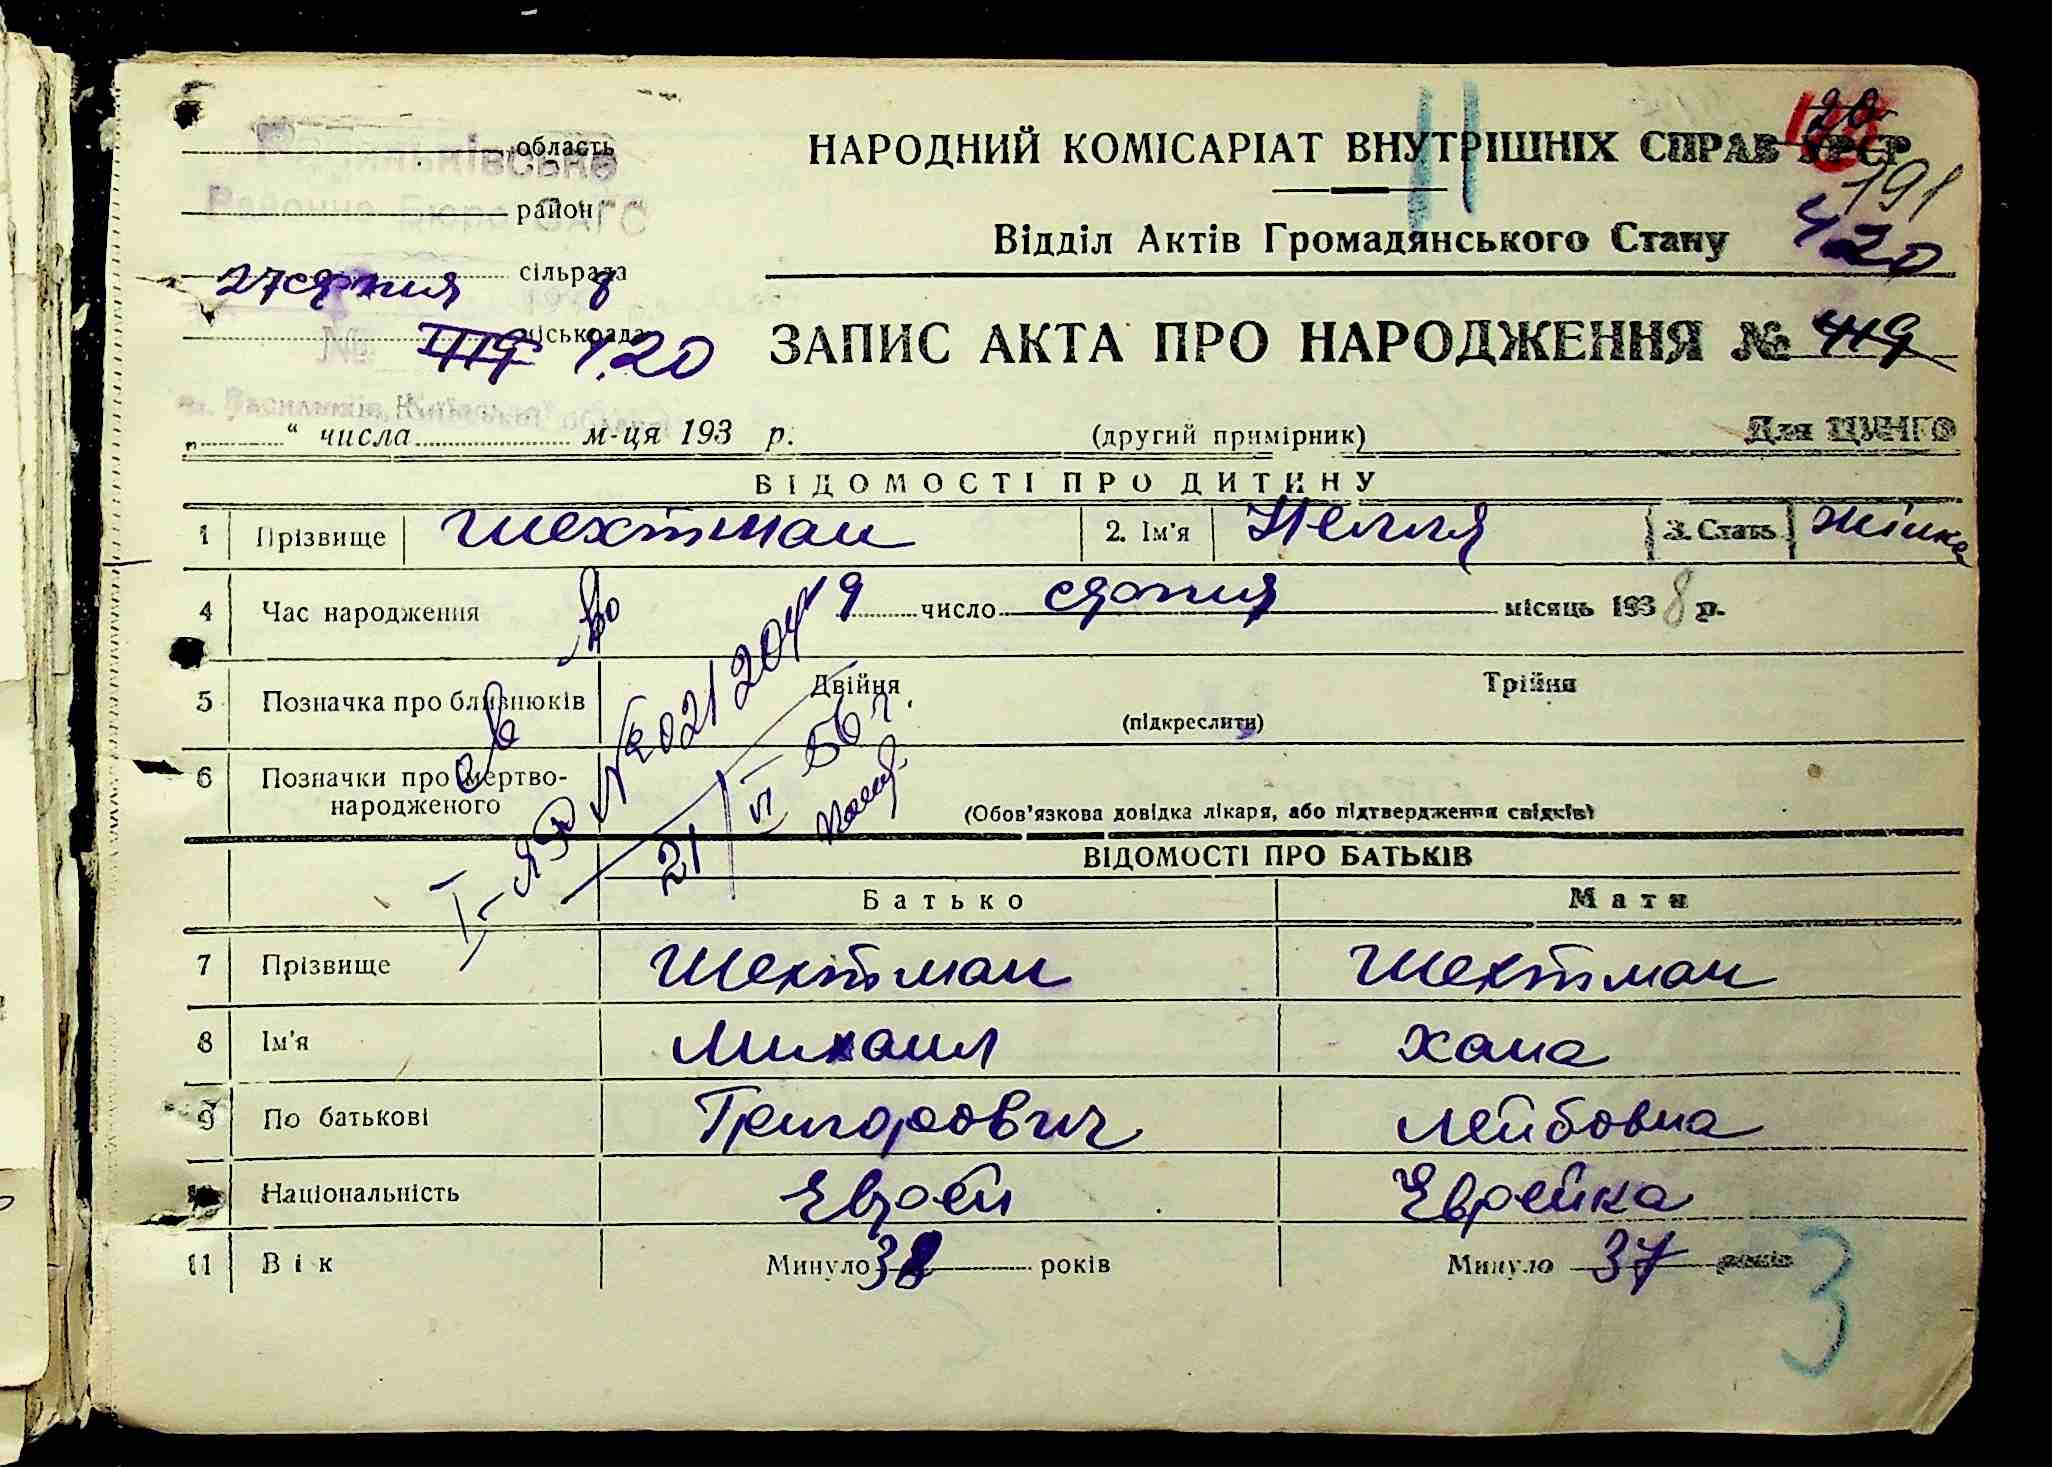 область
НАРОДНИЙ КОМІСАРІАТ ВНУТРІШНІХ СПРАВ УРСР
Районне Бюро ЗАГС
район
191
Відділ Актів Громадянського Стану
420
27 серпня 8
сільрада
міськрада
№ 419 420
ЗАПИС АКТА ПРО НАРОДЖЕННЯ № 419
м. Васильків, Київської області
„ “ числа м-ця 193 р.
(другий примірник)
Для ЦУНГО
ВІДОМОСТІ ПРО ДИТИНУ
1 Прізвище Шехтман 2. Ім'я Нелля 3. Стать жінка
4 Час народження 19 число серпня місяць 1938 р.
5 Позначка про близнюків Двійня Трійня
(підкреслити)
6 Позначки про мертвонародженого
(Обов'язкова довідка лікаря, або підтвердження свідків)
I-ЯЭ № 021204
21/VI 56 г.
ВІДОМОСТІ ПРО БАТЬКІВ
Батько Мати
7 Прізвище Шехтман Шехтман
8 Ім'я Михаил Хана
9 По батькові Григорович Лейбовна
10 Національність Еврей Еврейка
11 Вік Минуло 38 років Минуло 37 років
3